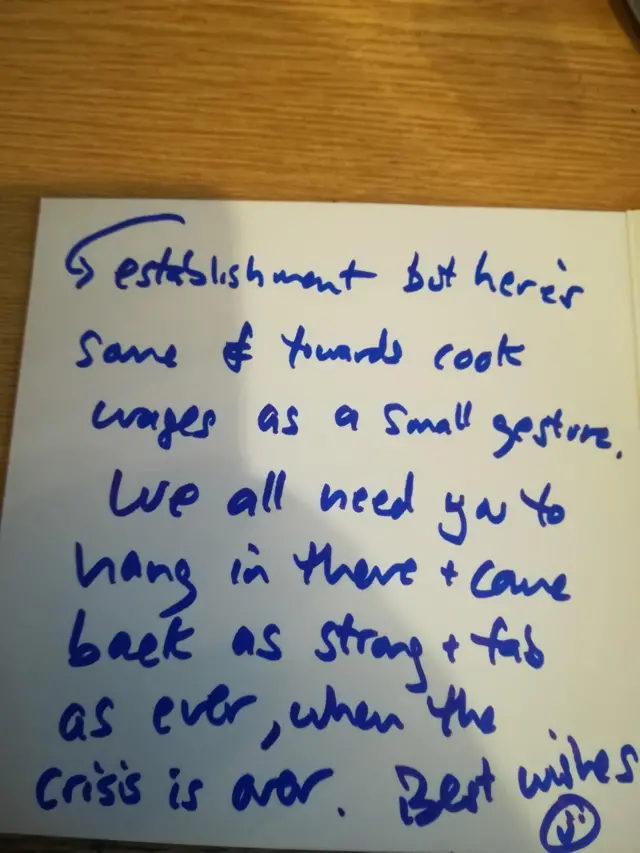 establishment but here's
some £ towards cook
wages as a small gesture.
We all need you to
hang in there + come
back as strong + fab
as ever, when the
crisis is over. Best wishes